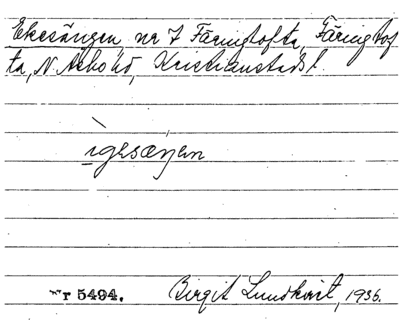 Ekesången nr 7 Färingtofta, Färingtof
ta, N. Åsbo hd, Kristianstads l.
ìgesæŋen
Nr 5494. Birgit Lundkvist, 1936.